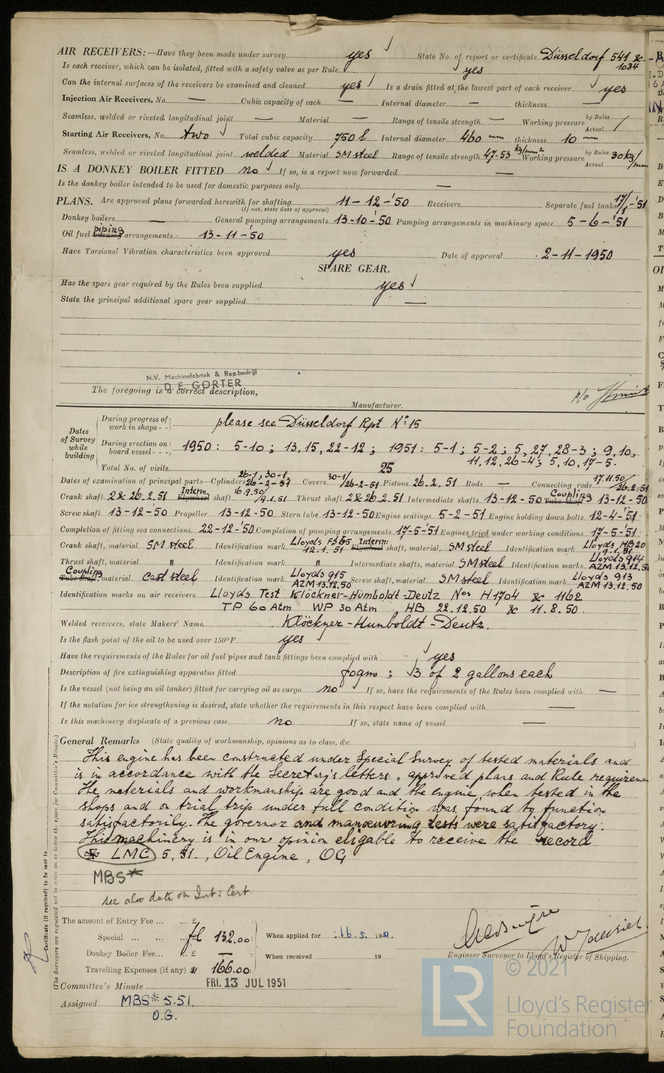 AIR RECEIVERS:—Have they been made under survey yes State No. of report or certificate Düsseldorf 541 & 1034
Is each receiver, which can be isolated, fitted with a safety valve as per Rule yes
Can the internal surfaces of the receivers be examined and cleaned yes Is a drain fitted at the lowest part of each receiver yes
Injection Air Receivers, No. — Cubic capacity of each — Internal diameter — thickness —
Seamless, welded or riveted longitudinal joint — Material — Range of tensile strength — Working pressure by Rules Actual
Starting Air Receivers, No. two Total cubic capacity 750 l Internal diameter 460 mm thickness 10 mm
Seamless, welded or riveted longitudinal joint welded Material SM steel Range of tensile strength 47-55 kg/mm2 Working pressure by Rules Actual 30 kg/
IS A DONKEY BOILER FITTED no If so, is a report now forwarded —
Is the donkey boiler intended to be used for domestic purposes only —
PLANS. Are approved plans forwarded herewith for shafting 11-12-'50 Receivers Separate fuel tanks 17/1-'51
(If not, state date of approval)
Donkey boilers — General pumping arrangements 13-10-'50 Pumping arrangements in machinery space 5-6-'51
Oil fuel piping arrangements 13-11-'50
Have Torsional Vibration characteristics been approved yes Date of approval 2-11-1950
SPARE GEAR.
Has the spare gear required by the Rules been supplied yes
State the principal additional spare gear supplied —
N.V. Machinefabriek & Rep.bedrijf
D.E. GORTER
The foregoing is a correct description,
Manufacturer.
Dates of Survey while building
During progress of work in shops - - please see Düsseldorf Rpt No 15
During erection on board vessel - - - 1950: 5-10; 13, 15, 22-12; 1951: 5-1; 5-2; 5, 27, 28-3; 9, 10,
11, 12, 26-4; 5, 10, 17-5.
Total No. of visits 25
Dates of examination of principal parts—Cylinders Covers 30-1/26-2-51 Pistons 26.2.51 Rods — Connecting rods 17.11.50/26.2.51
Crank shaft 2 & 26.2.51 Interm. shaft 16.9.50/9.1.51 Thrust shaft 2 & 26.2.51 Intermediate shafts 13-12-50 Coupling 13-12-50
Screw shaft 13-12-50 Propeller 13-12-50 Stern tube 13-12-50 Engine seatings 5-2-51 Engine holding down bolts 12-4-'51
Completion of fitting sea connections 22-12-'50 Completion of pumping arrangements 17-5-'51 Engines tried under working conditions 17-5-'51
Crank shaft, material SM steel Identification mark Lloyds FS65 12.1.51 Interm. shaft, material SM steel Identification mark Lloyds HB20
Thrust shaft, material " Identification mark " Intermediate shafts, material SM steel Identification marks Lloyds 914 AZM 13.12.50
Coupling material Cast steel Identification mark Lloyds 915 AZM 13.12.50 Screw shaft, material SM steel Identification mark Lloyds 913 AZM 13.12.50
Identification marks on air receivers Lloyds Test Klöckner-Humboldt-Deutz Nos H1704 & 1162
TP 60 Atm WP 30 Atm HB 22.12.50 & 11.8.50.
Welded receivers, state Makers' Name Klöckner-Humboldt-Deutz.
Is the flash point of the oil to be used over 150°F yes
Have the requirements of the Rules for oil fuel pipes and tank fittings been complied with yes
Description of fire extinguishing apparatus fitted foam; 3 of 2 gallons each
Is the vessel (not being an oil tanker) fitted for carrying oil as cargo no If so, have the requirements of the Rules been complied with —
If the notation for ice strengthening is desired, state whether the requirements in this respect have been complied with —
Is this machinery duplicate of a previous case no If so, state name of vessel —
General Remarks (State quality of workmanship, opinions as to class, &c.
This engine has been constructed under Special Survey of tested materials and
is in accordance with the Secretary's letters, approved plans and Rule requirem
The materials and workmanship are good and the engine, when tested in the
shops and on trial trip under full condition was found to function
satisfactorily. The governor and manœuvring tests were satisfactory.
This machinery is in our opinion eligable to receive the record
* LMC 5,51., Oil Engine, OG
MBS*
see also date on Int: Cert
The amount of Entry Fee ... .. £ :
Special ... ... fl 132.00:
Donkey Boiler Fee... ... £ — :
Travelling Expenses (if any) £ 166.00:
When applied for 16.5. 1951.
When received 19
Engineer Surveyor to Lloyd's Register of Shipping.
Committee's Minute FRI. 13 JUL 1951
Assigned MBS* 5.51.
O.G.
© 2021
LR
Lloyd's Register
Foundation